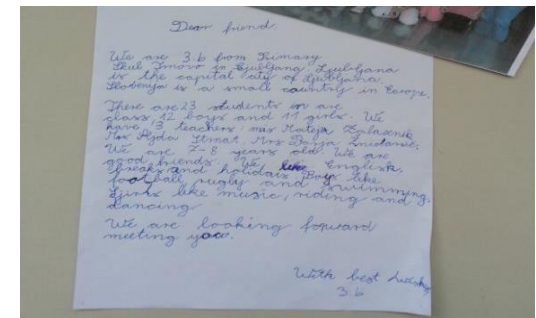 Dear friend,
We are 3.b from Primary
Skul Trnovo in Ljubljana. Ljubljana
is the capital city of Ljubljana,
Slovenija is a small country in Europe.
There are 23 students in are
class, 12 boys and 11 girls. We
have 3 teachers: Mateja
Mrs Mrs
We are 7-8 years old. We are
good friends. We like English,
breaks and holidais Boys like
football rugby and swimming.
Girls like music, riding and
dancing
We are looking forward
meeting you.
With best
3.b